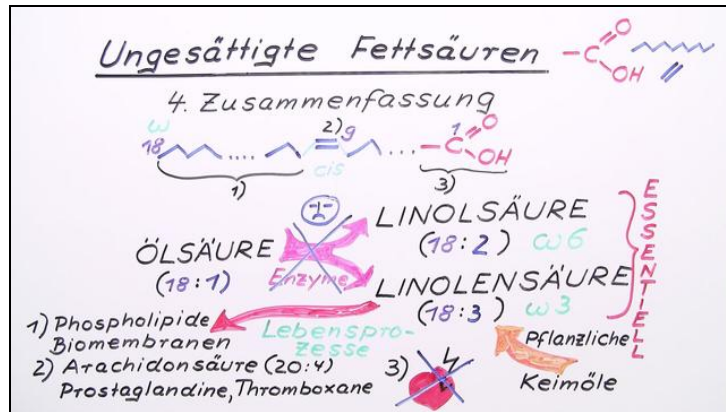 Ungesättigte Fettsäuren
C O OH
4. Zusammenfassung
ω
18 .... 2) 9 ... 1 C O OH
cis
1) 3)
ÖLSÄURE
(18:1)
Enzyme
LINOLSÄURE
(18:2) ω6
LINOLENSÄURE
(18:3) ω3
ESSENTIELL
Lebenspro-
zesse
Pflanzliche
Keimöle
1) Phospholipide
Biomembranen
2) Arachidonsäure (20:4)
Prostaglandine, Thromboxane
3)